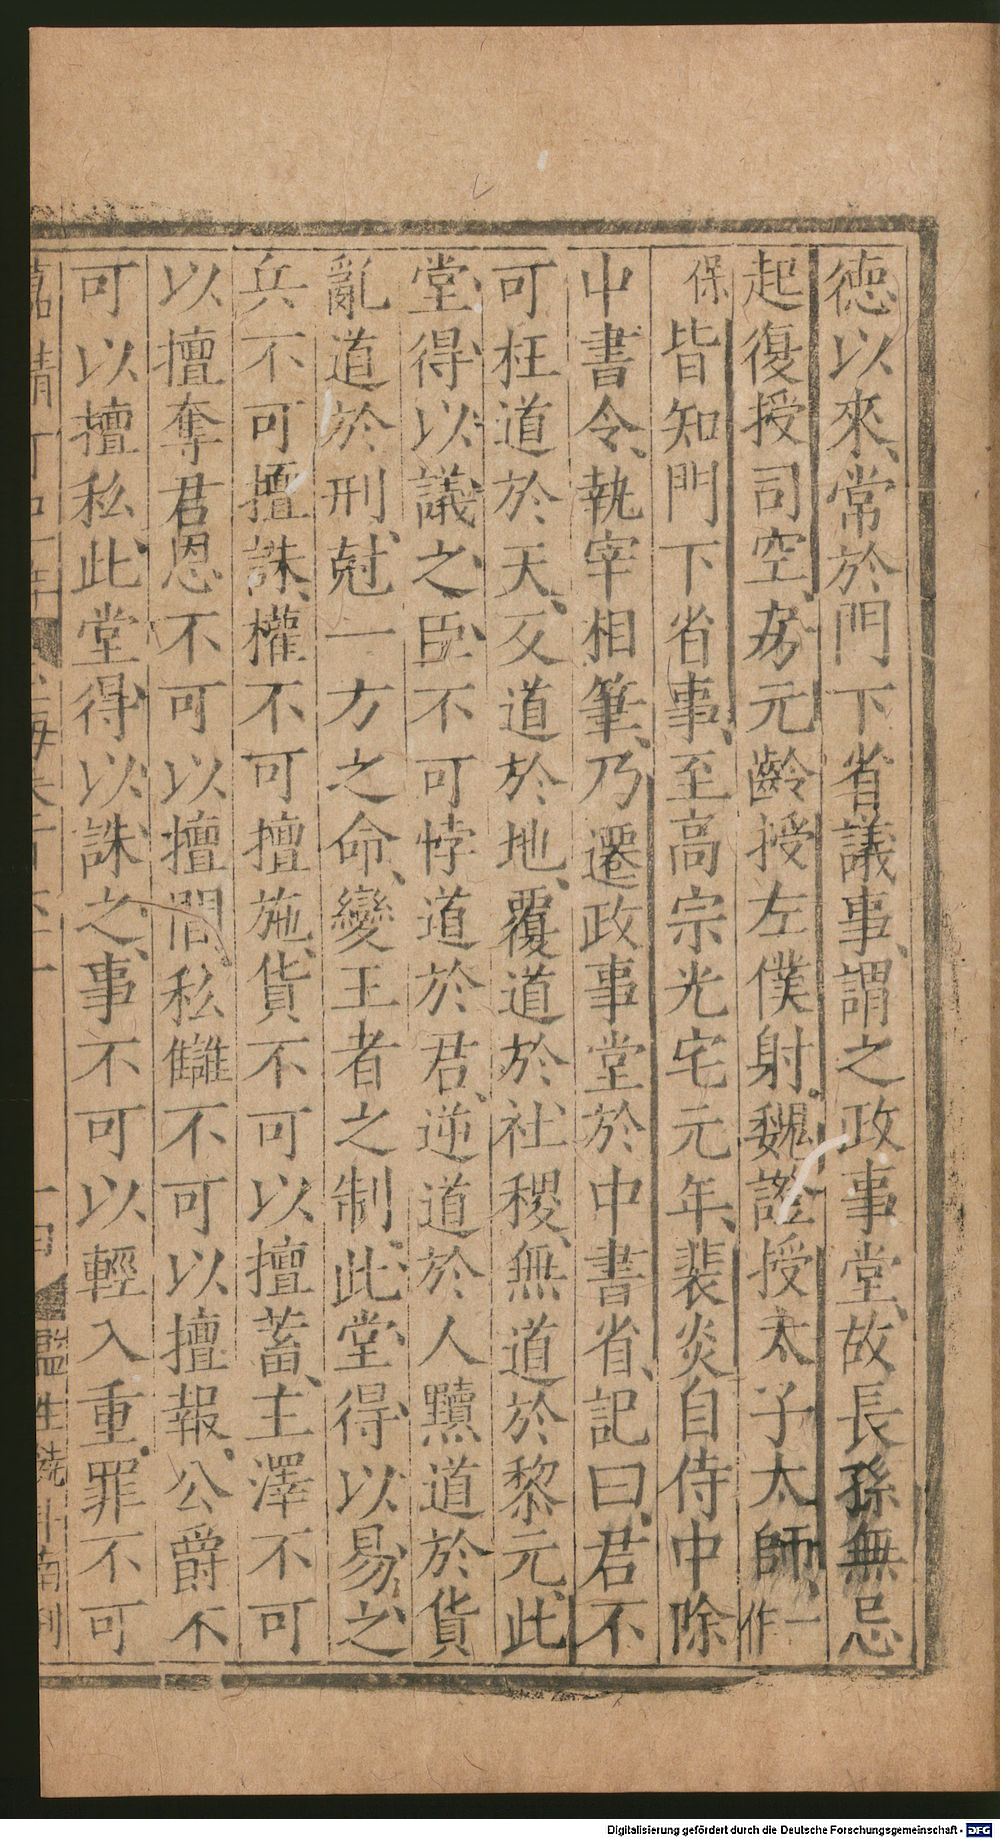 德以來常於門下省議事謂之政事堂故長孫無忌
起復授司空房元齡授左僕射魏證授太子太師一作
保皆知門下省事至高宗光宅元年裴炎自侍中除
中書令執宰相筆乃遷政事堂於中書省記曰君不
可枉道於天反道於地覆道於社稷無道於黎元此
堂得以議之臣不可悖道於君逆道於人黷道於貨
亂道於刑尅一方之命變王者之制此堂得以易之
兵不可擅誅權不可擅施貨不可以擅蓄主澤不可
以擅奪君恩不可以擅間私讎不可以擅報公爵不
可以擅私此堂得以誅之事不可以輕入重罪不可
Digitalisierung gefördert durch die Deutsche Forschungsgemeinschaft - DFG